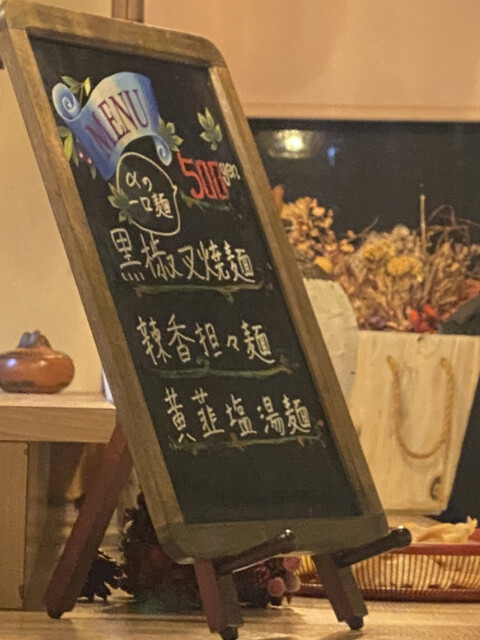 MENU
500yen
αの
一口麺
黒椒叉焼麺
辣香担々麺
黄韮塩湯麺